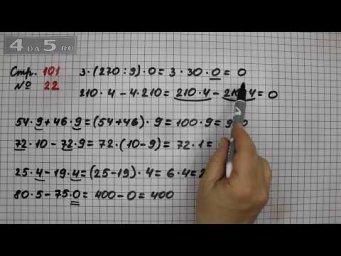 4DA5.RU
Стр. 101
№ 22
3·(270:9)·0=3·30·0=0
210·4-4·210=210·4-210·4=0
54·9+46·9=(54+46)·9=100·9=900
72·10-72·9=72·(10-9)=72·1=
25·4-19·4=(25-19)·4=6·4=2
80·5-75·0=400-0=400